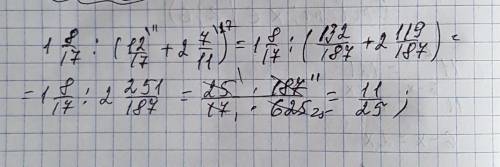 1 8/17 : (12/17 \11 + 2 7/11 \17) = 1 8/17 : (132/187 + 2 119/187) =
= 1 8/17 : 2 251/187 = 25 \1 · 187 \11 / 17 1 · 625 25 = 11/25 ;